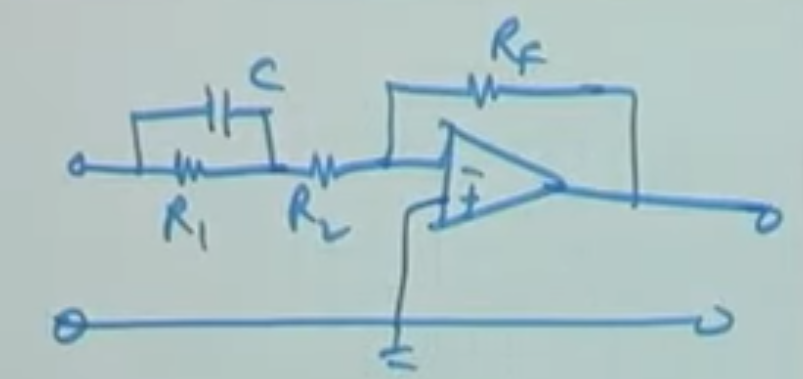 RF
C
R1
R2
-
+